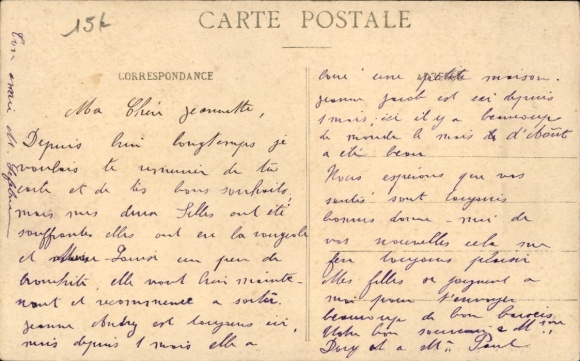 15k
CARTE POSTALE
CORRESPONDANCE
Ma Chère Jeannette,
Depuis bien longtemps je
voulais te remercier de ta
carte et de tes bons souhaits,
mais mes deux filles ont été
souffrantes elles ont eu la rougeole
et Louise un peu de
bronchite, elle vont bien mainte-
nant et recommence a sortir.
Jeanne Andry est toujours ici,
mais depuis 1 mois elle a
loué une petite maison.
Jeanne Jacob est ici depuis
1 mois, ici il y a beaucoup
de monde le mois d'Août
a été beau
Nous esperons que vos
santés sont toujours
bonnes donne-moi de
vos nouvelles cela me
fera toujours plaisir
Mes filles se joignent a
moi pour t'envoyer
beaucoup de bon baisers
Notre bon souvenir a Mme
Dory et a Mr Paul
Ton amie